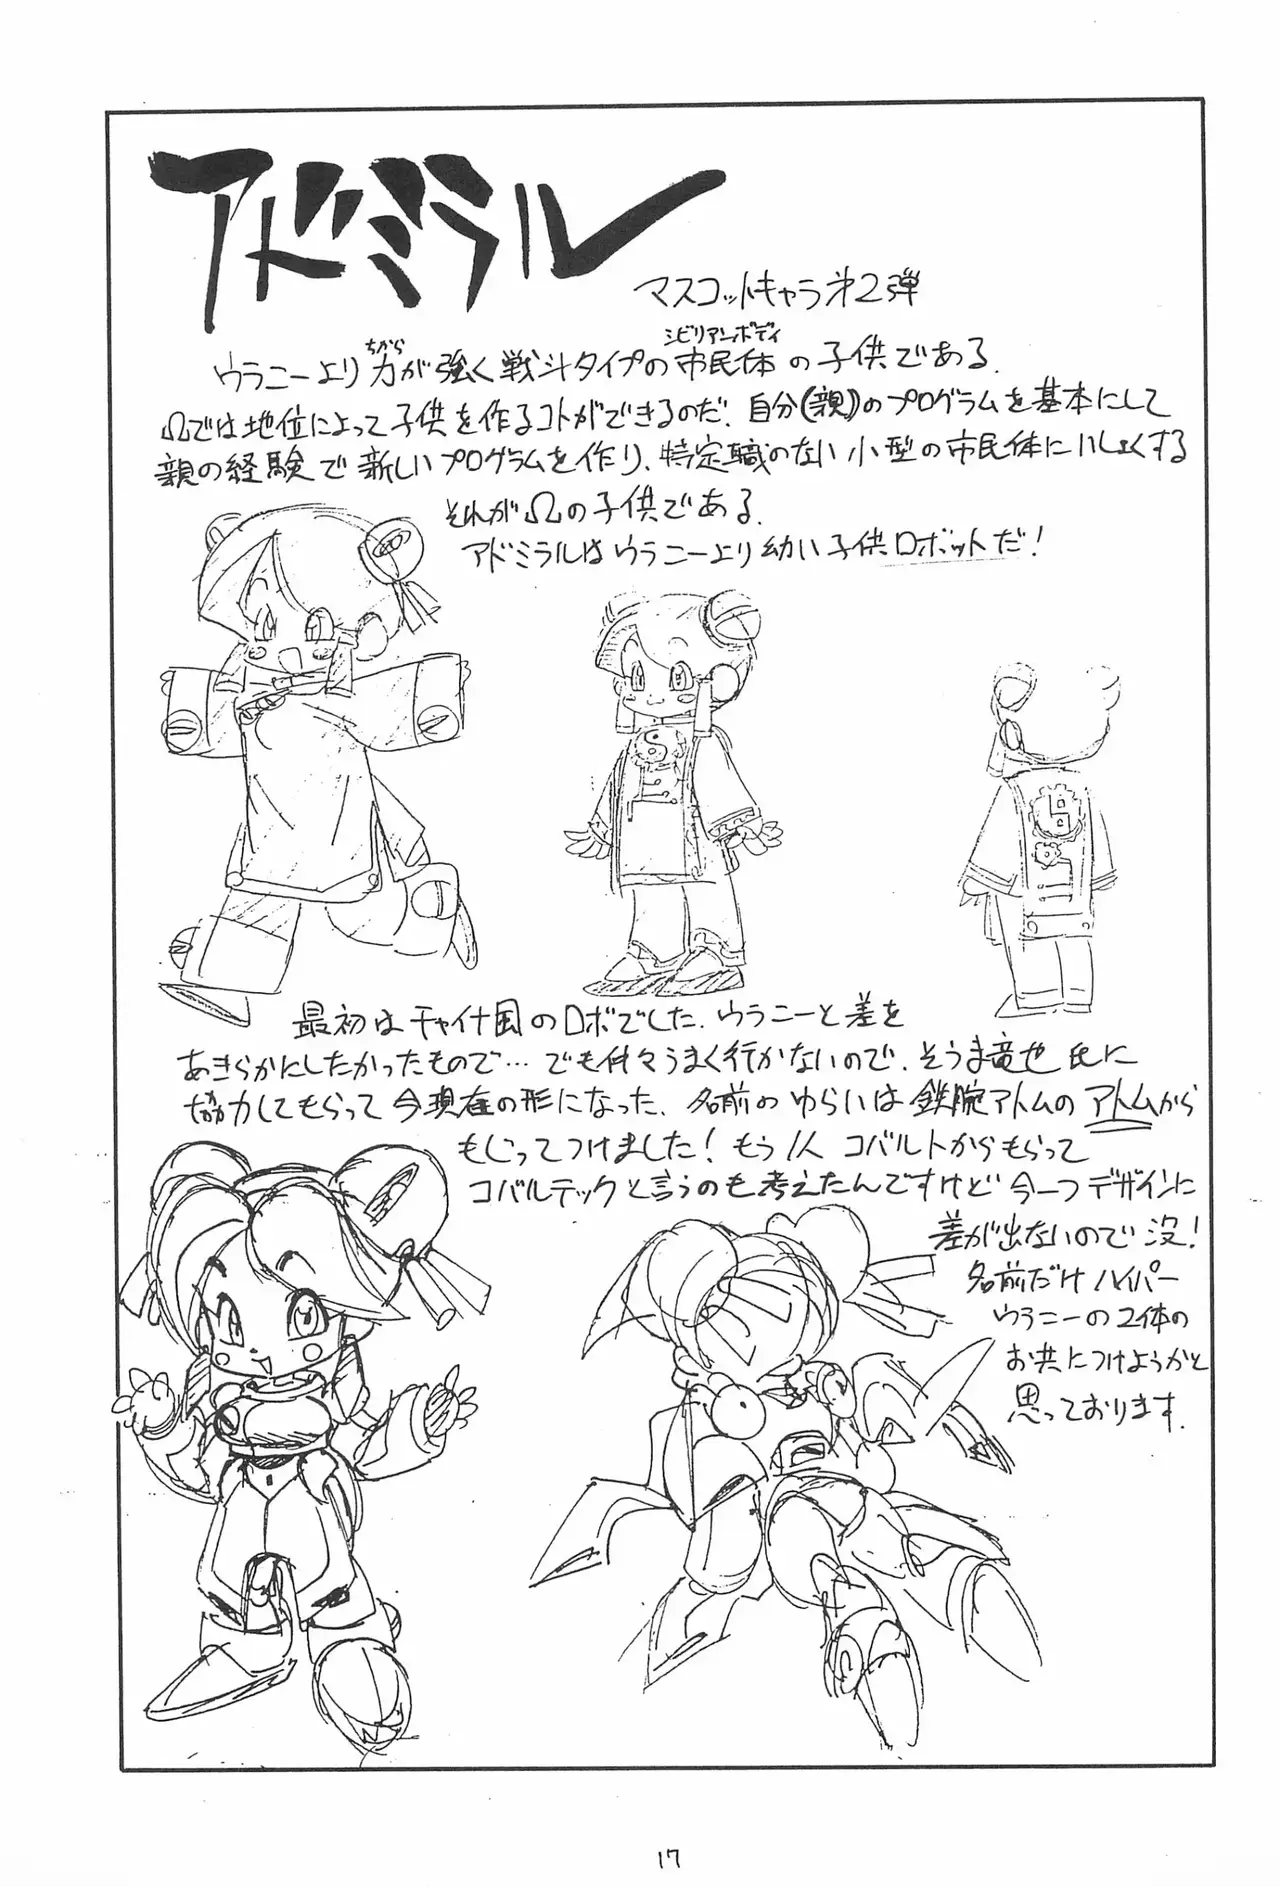 アドミラル
マスコットキャラ㐧2弾
ウラニーより力(ちから)が強く戦斗タイプの市民体(シビリアンボディ)の子供である.
Ωでは地位によって子供を作るコトができるのだ.自分(親)のプログラムを基本にして
親の経験で新しいプログラムを作り、特定職のない小型の市民体にいしょくする
それがΩの子供である.
アドミラルはウラニーより幼い子供ロボットだ!
最初はチャイナ風のロボでした.ウラニーと差を
あきらかにしたかったもので…でも仲々うまく行かないので.そうま竜也氏に
協力してもらって今現在の形になった.名前のゆらいは鉄腕アトムのアトムから
もじってつけました!もう1人コバルトからもらって
コバルテックと言うのも考えたんですけど今一つデザインに
差が出ないので没!
名前だけハイパー
ウラニーの2体の
お共につけようかと
思っております.
17